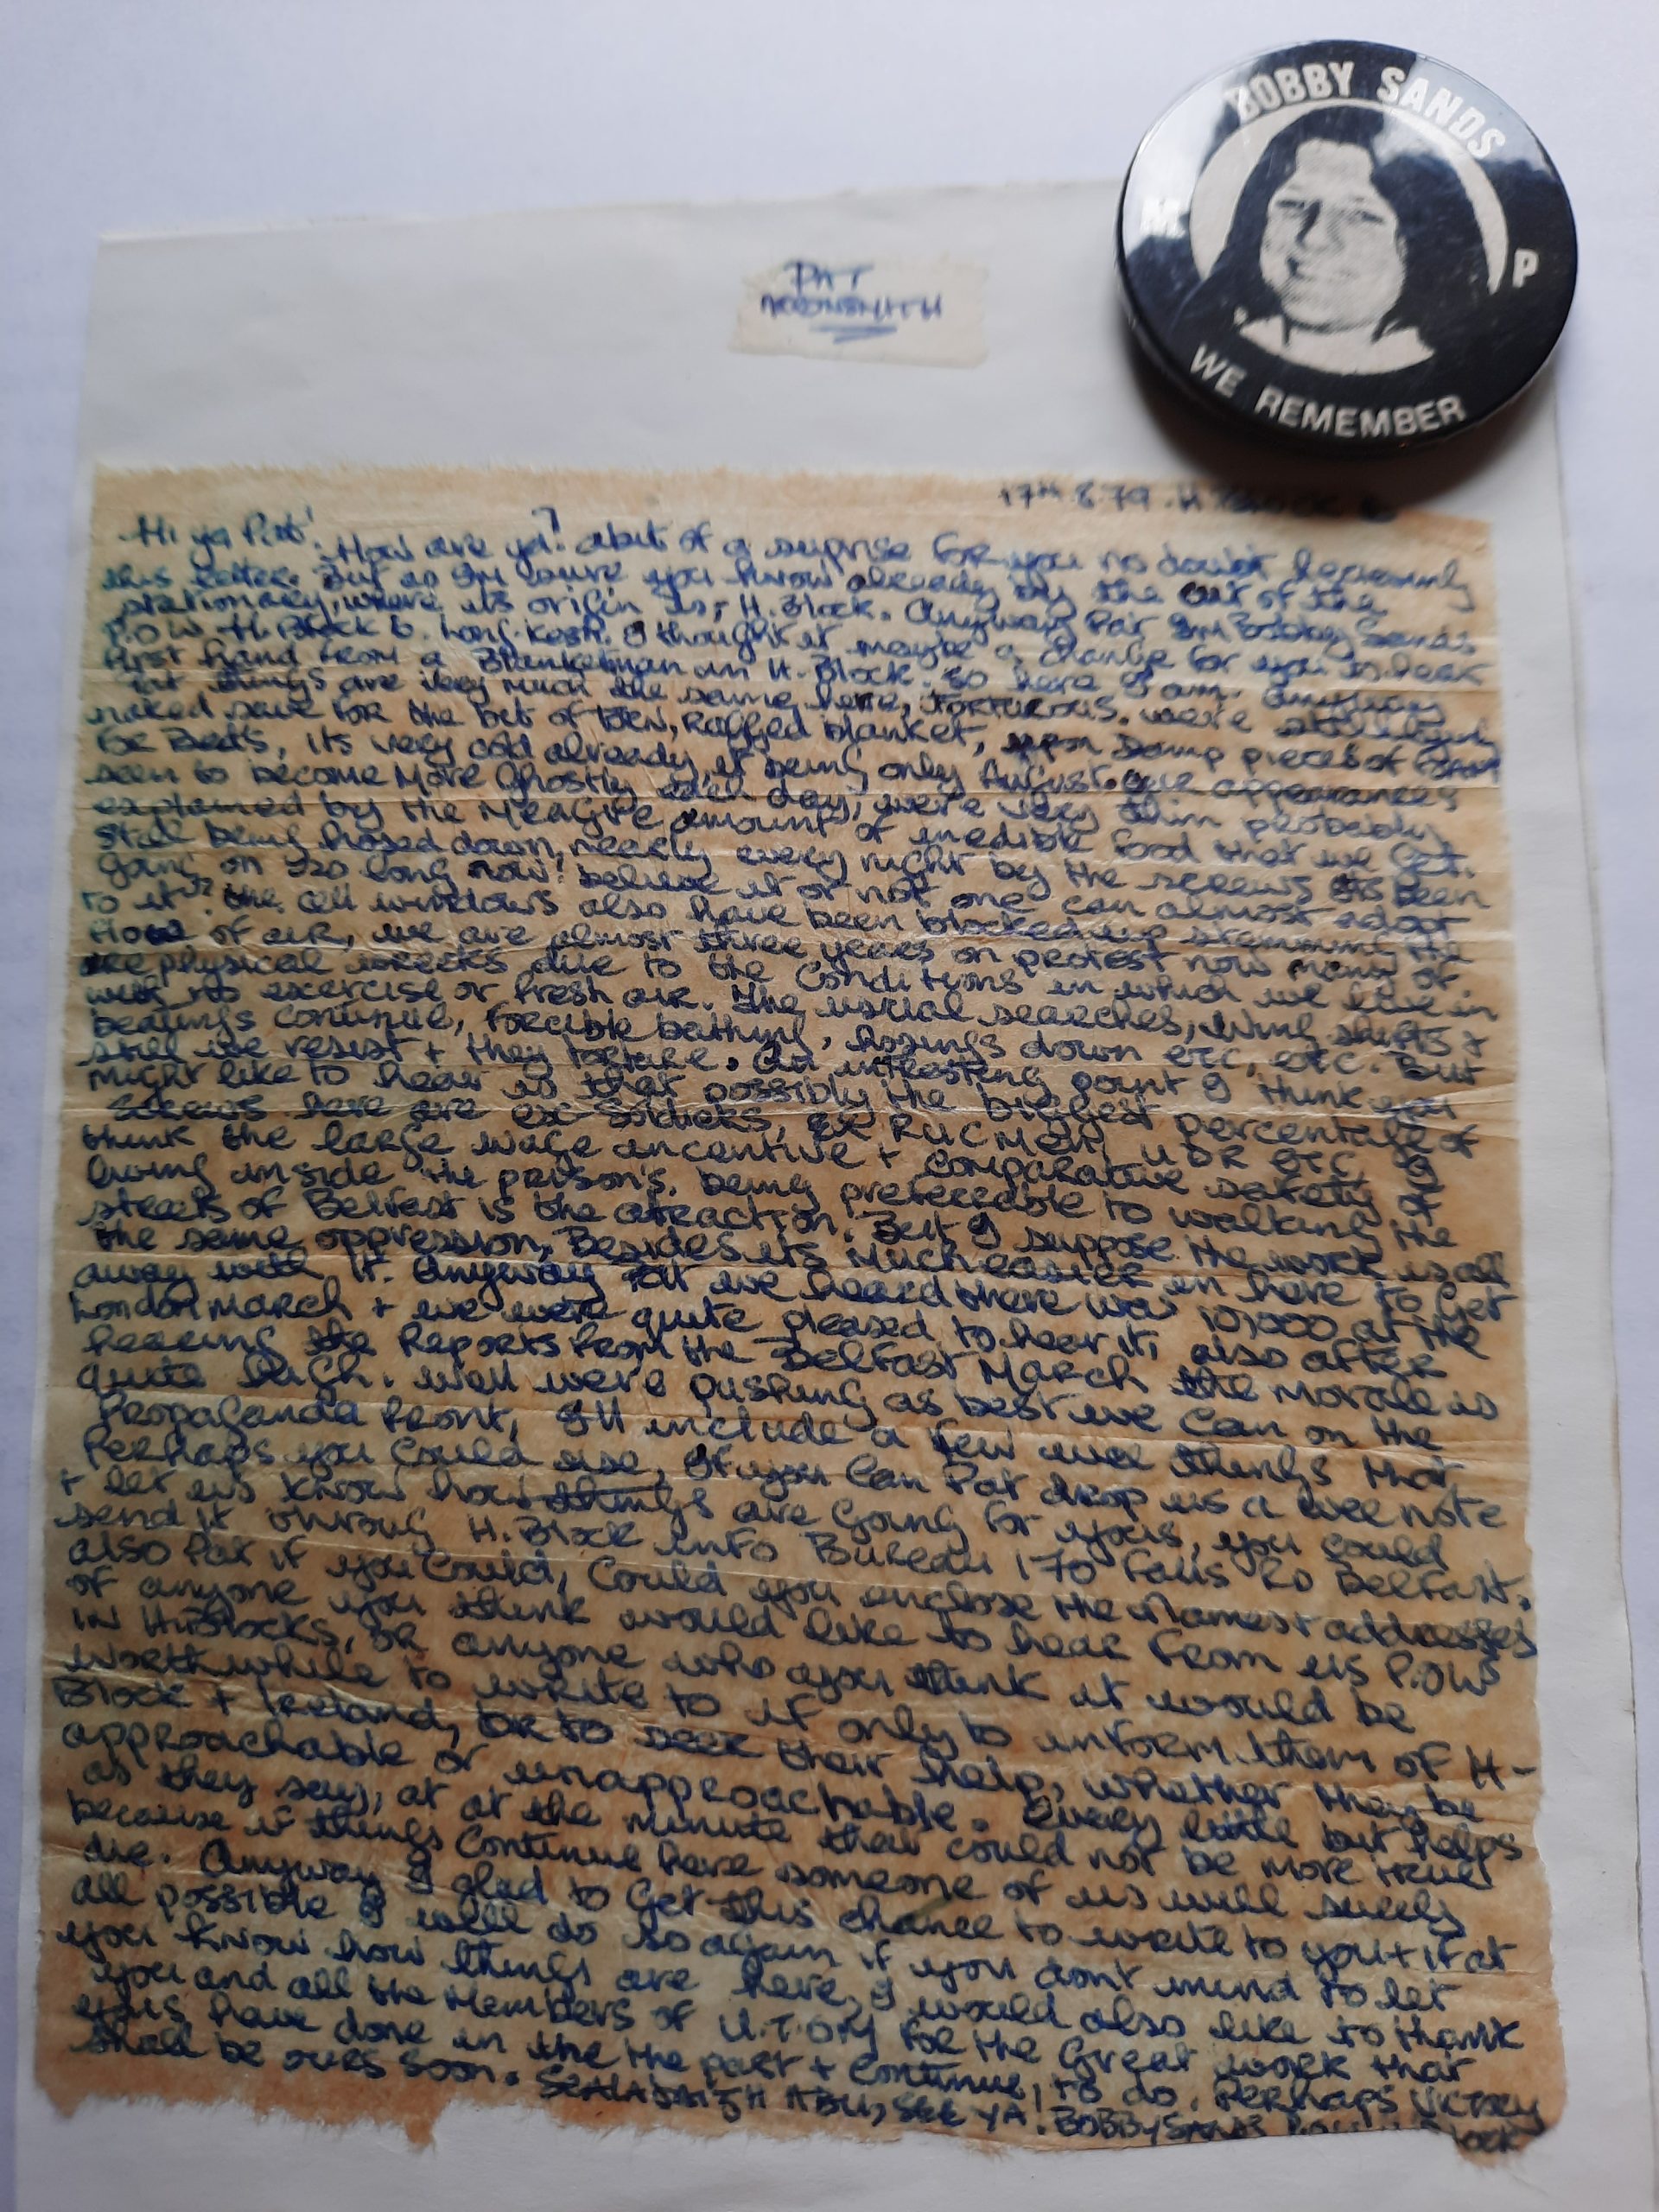 BOBBY SANDS
M P
WE REMEMBER
PAT
ARROWSMITH
17th 8.79. H BLOCK 6
Hi ya Pat!
How are ya? abit of a suprise for you no doubt
this letter. But as I'm sure you know already by the cut of the
stationary, where its origin is; H.Block. Anyway Pat I'm Bobby Sands
P.O.W. H.Block 6. Long-Kesh. I thought it maybe a change for you to hear
first hand from a Blanketman in H.Block. So here I am. Anyway
Pat, things are very much the same here, TORTUROUS. we're still lying
naked save for the bit of torn, Ragged blanket, upon damp pieces of foam
For Beds, its very cold already, it being only August. our appearances
seem to become More Ghostly each day, we're very thin probably
explained by the Meagre amount of inedible food that we get.
Still being hosed down, nearly every night by the screws its been
going on so long now, believe it or not one can almost adapt
to it. the cell windows also have been blocked up stemming the
flow of air, we are almost three years on protest now many of
physical wrecks due to the Conditions in which we live in
with no exercise or fresh air. The usual searches, wing shifts +
beatings continue, Forcible bathing, hosings down etc, etc. But
still we resist + they torture. An intresting point I think you
might like to hear is that possibly the biggest percentage of
Screws here are ex-soldiers, RUC MEN, UDR etc, I
think the large wage incentive + comparative safety of
living inside the prison's, being preferable to walking the
streets of Belfast is the atraction. But I suppose the work is all
the same oppression, Besides its much easier in here to Get
away with it. Anyway Pat we heard there was 10,000 at the
London March + we were quite pleased to hear it, also after
hearing the Reports from the Belfast March the morale is
quite high. Well we're pushing as best we can on the
Propaganda front, I'll include a few wee things that
Perhaps you could use, If you can Pat drop us a wee note
+ let us know how things are going for yous, you could
send it throug H.Block info Bureau 170 Falls Rd Belfast.
also Pat if you could, Could you enclose the names + addresses
of anyone you think would like to hear from us P.OWs
in H.Blocks, or anyone who you think it would be
worthwhile to write to if only to inform them of H-
Block + Ireland, or to seek their help, whether they be
approachable or unapproachable. Every little bit helps
as they say, at at the minute that could not be more true
because if things continue here someone of us will surely
die. Anyway I glad to get this chance to write to you + if at
all possible I will do so again if you don't mind to let
you know how things are here, I would also like to thank
you and all the Members of U.T.OM for the Great work that
yous have done in the the past + continue to do. Perhaps VICTORY
shall be ours soon. ABU, SEE YA! BOBBY SANDS